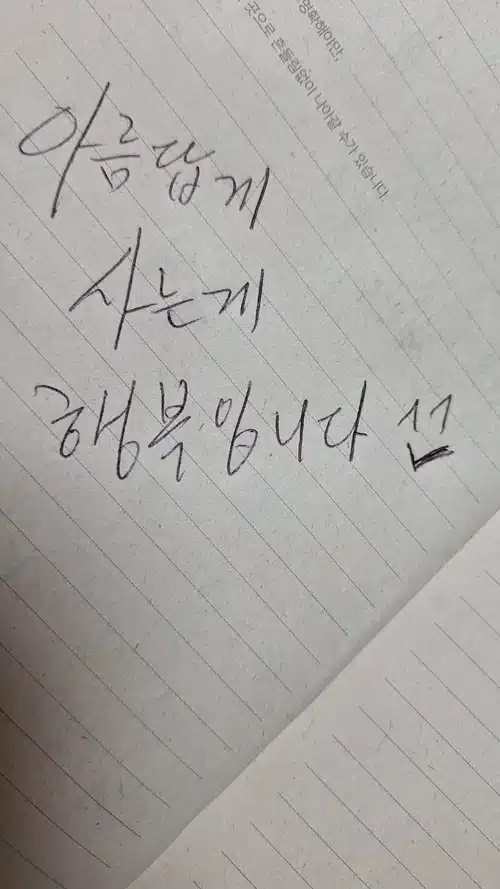 명확해야만,
곳으로 흔들림없이 나아갈 수가 있습니다.
아름답게
사는게
행복입니다